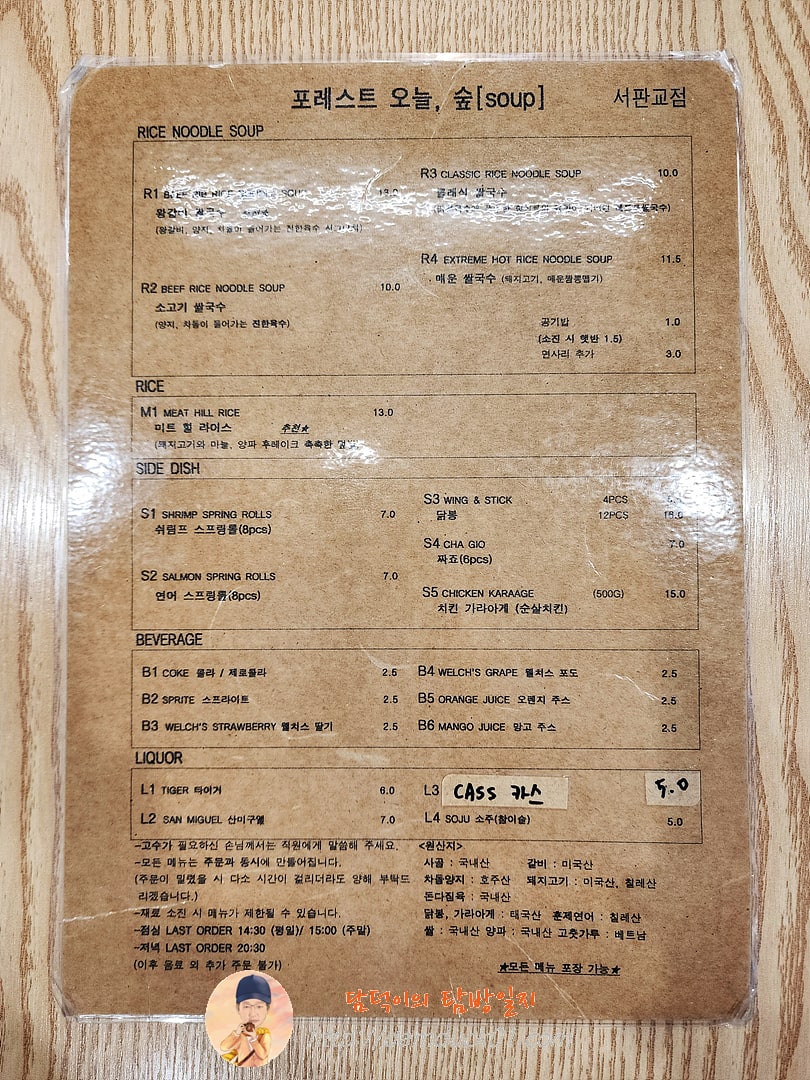 포레스트 오늘, 숲[soup] 서판교점
RICE NOODLE SOUP
R1 BEEF RIB RICE NOODLE SOUP 13.0
왕갈비 쌀국수 추천★
(왕갈비, 양지, 차돌이 들어가는 진한육수
R2 BEEF RICE NOODLE SOUP 10.0
소고기 쌀국수
(양지, 차돌이 들어가는 진한육수)
R3 CLASSIC RICE NOODLE SOUP 10.0
클래식 쌀국수
R4 EXTREME HOT RICE NOODLE SOUP 11.5
매운 쌀국수 (돼지고기, 매운짬뽕맵기)
공기밥 1.0
(소진 시 햇반 1.5)
면사리 추가 3.0
RICE
M1 MEAT HILL RICE 13.0
미트 힐 라이스 추천★
(돼지고기와 마늘, 양파 후레이크 촉촉한 덮밥)
SIDE DISH
S1 SHRIMP SPRING ROLLS 7.0
쉬림프 스프링롤(8pcs)
S2 SALMON SPRING ROLLS 7.0
연어 스프링롤(8pcs)
S3 WING & STICK 4PCS
닭봉 12PCS
S4 CHA GIO 7.0
짜죠(6pcs)
S5 CHICKEN KARAAGE (500G) 15.0
치킨 가라아게 (순살치킨)
BEVERAGE
B1 COKE 콜라 / 제로콜라 2.5
B2 SPRITE 스프라이트 2.5
B3 WELCH'S STRAWBERRY 웰치스 딸기 2.5
B4 WELCH'S GRAPE 웰치스 포도 2.5
B5 ORANGE JUICE 오렌지 주스 2.5
B6 MANGO JUICE 망고 주스 2.5
LIQUOR
L1 TIGER 타이거 6.0
L2 SAN MIGUEL 산미구엘 7.0
L3 CASS 카스 5.0
L4 SOJU 소주(참이슬) 5.0
-고수가 필요하신 손님께서는 직원에게 말씀해 주세요.
-모든 메뉴는 주문과 동시에 만들어집니다.
(주문이 밀렸을 시 다소 시간이 걸리더라도 양해 부탁드
리겠습니다.)
-재료 소진 시 메뉴가 제한될 수 있습니다.
-점심 LAST ORDER 14:30 (평일)/ 15:00 (주말)
-저녁 LAST ORDER 20:30
(이후 음료 외 추가 주문 불가)
<원산지>
사골 : 국내산 갈비 : 미국산
차돌양지 : 호주산 돼지고기 : 미국산, 칠레산
돈다짐육 : 국내산
닭봉, 가라아게 : 태국산 훈제연어 : 칠레산
쌀 : 국내산 양파 : 국내산 고춧가루 : 베트남
★모든 메뉴 포장 가능★
담덕이의 탐방일지